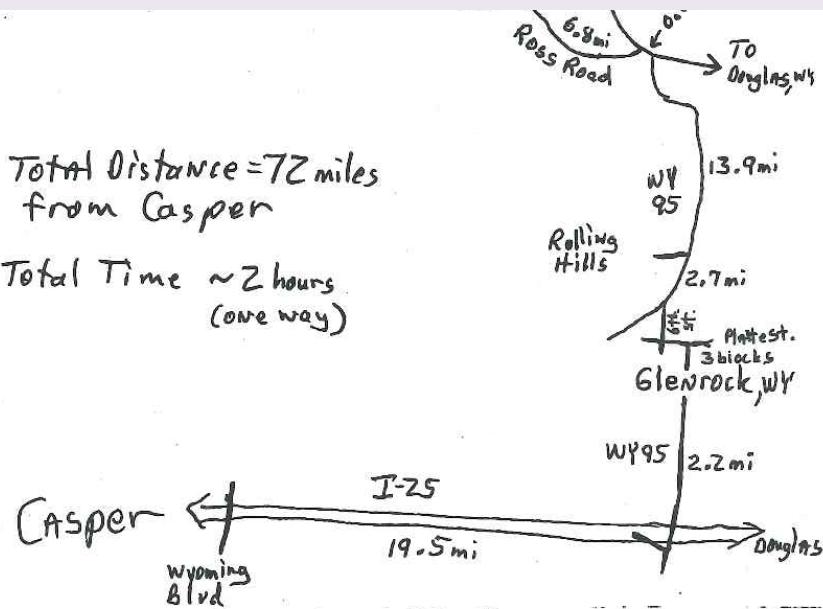 6.8mi
Ross Road
TO
Douglas, WY
Total Distance = 72 miles
from Casper
Total Time ~2 hours
(one way)
WY
95
13.9mi
Rolling
Hills
2.7mi
Platte St.
3 blocks
Glenrock, WY
WY95
2.2mi
I-25
Casper
19.5mi
Douglas
Wyoming
Blvd